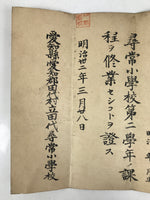 尋常小學校第二學年ノ課
程ヲ修業セシコトヲ證ス
明治卅二年三月廿八日
愛知縣愛知郡田代村立田代尋常小學校